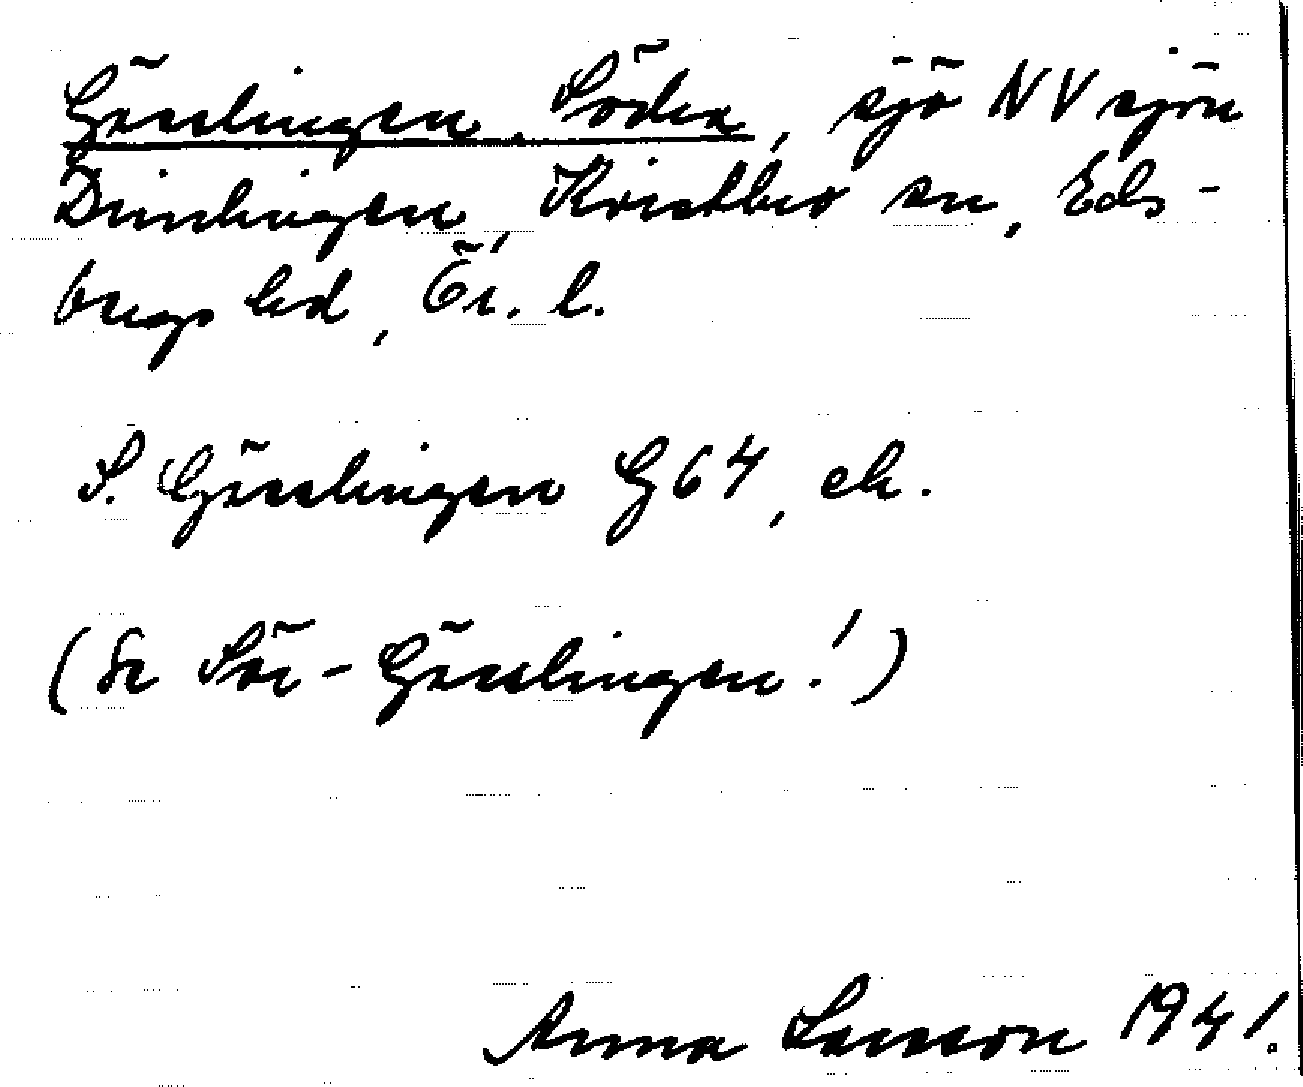 Gässlingen, Södra, sjö NV sjön
Dimlingen, Kvistbro sn, Eds-
bergs hd, Ör. l.
S. Gässlingen G 64, ek.
(Se Sör-Gässlingen!)
Anna Larsson 1941.